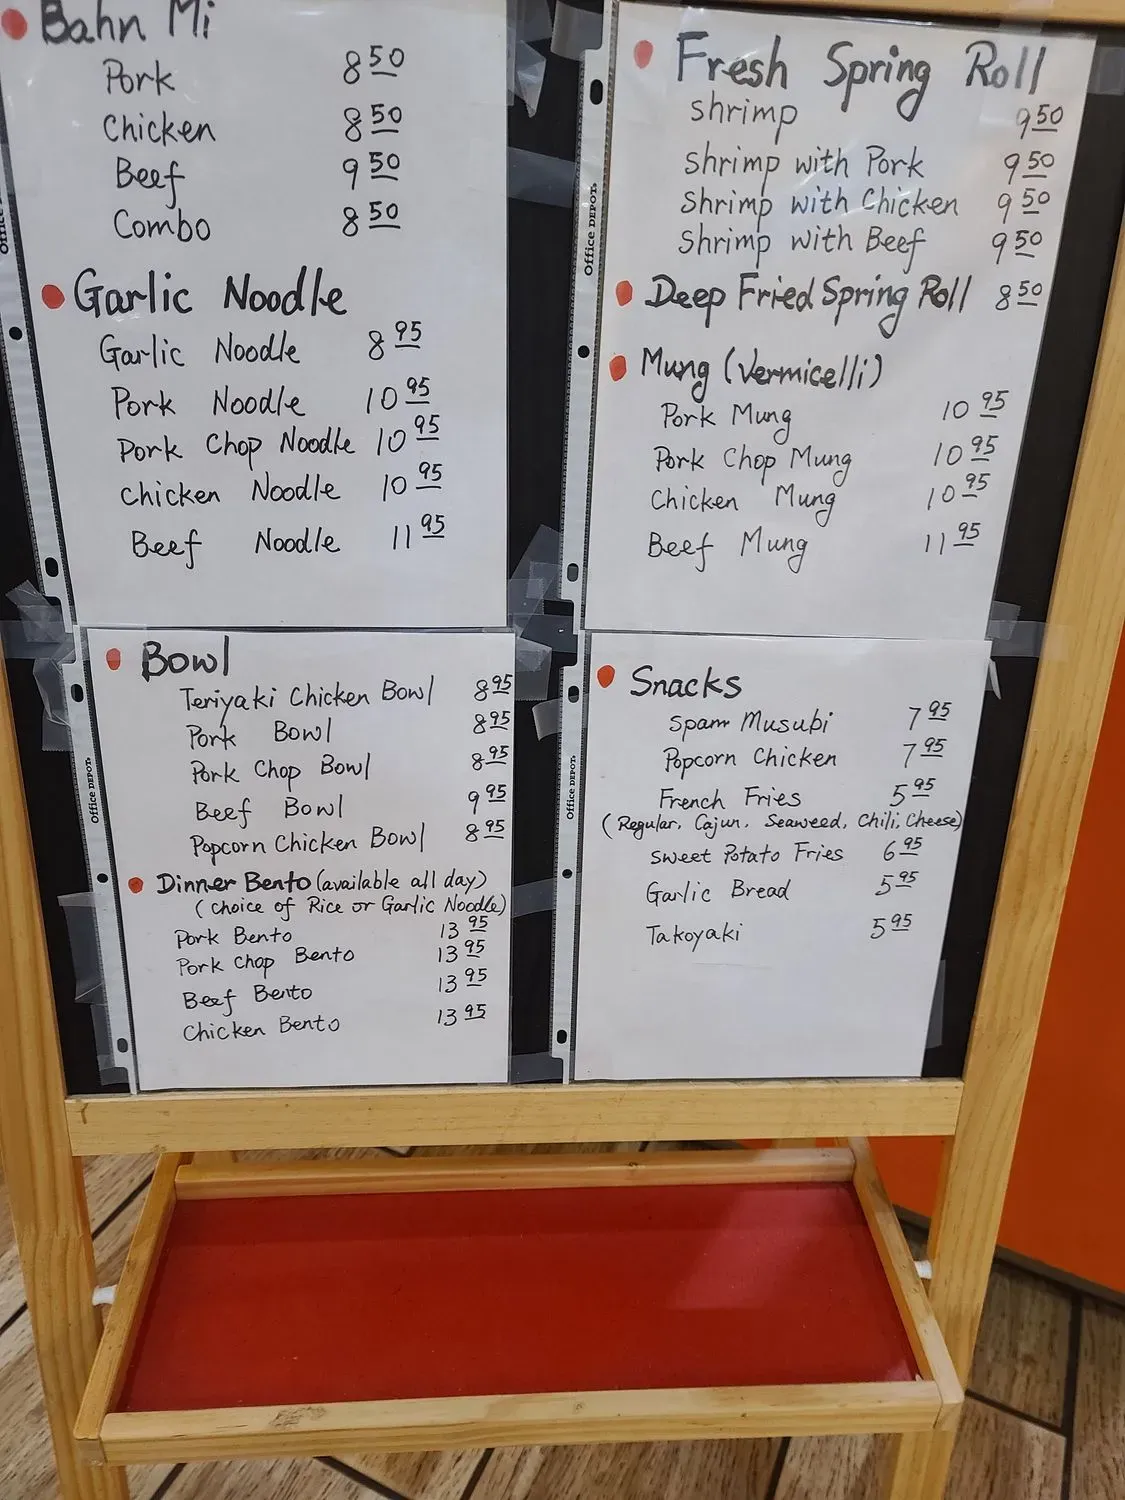 Bahn Mi
Pork 8 50
Chicken 8 50
Beef 9 50
Combo 8 50
Garlic Noodle
Garlic Noodle 8 95
Pork Noodle 10 95
Pork Chop Noodle 10 95
Chicken Noodle 10 95
Beef Noodle 11 95
Fresh Spring Roll
Shrimp 9 50
Shrimp with Pork 9 50
Shrimp with Chicken 9 50
Shrimp with Beef 9 50
Deep Fried Spring Roll 8 50
Mung (Vermicelli)
Pork Mung 10 95
Pork Chop Mung 10 95
Chicken Mung 10 95
Beef Mung 11 95
Bowl
Teriyaki Chicken Bowl 8 95
Pork Bowl 8 95
Pork Chop Bowl 8 95
Beef Bowl 9 95
Popcorn Chicken Bowl 8 95
Dinner Bento (available all day)
(choice of Rice or Garlic Noodle)
Pork Bento 13 95
Pork Chop Bento 13 95
Beef Bento 13 95
Chicken Bento 13 95
Snacks
Spam Musubi 7 95
Popcorn Chicken 7 95
French Fries 5 95
(Regular, Cajun, Seaweed, Chili, Cheese)
Sweet Potato Fries 6 95
Garlic Bread 5 95
Takoyaki 5 95
Office
Office DEPOT
Office DEPOT
Office DEPOT